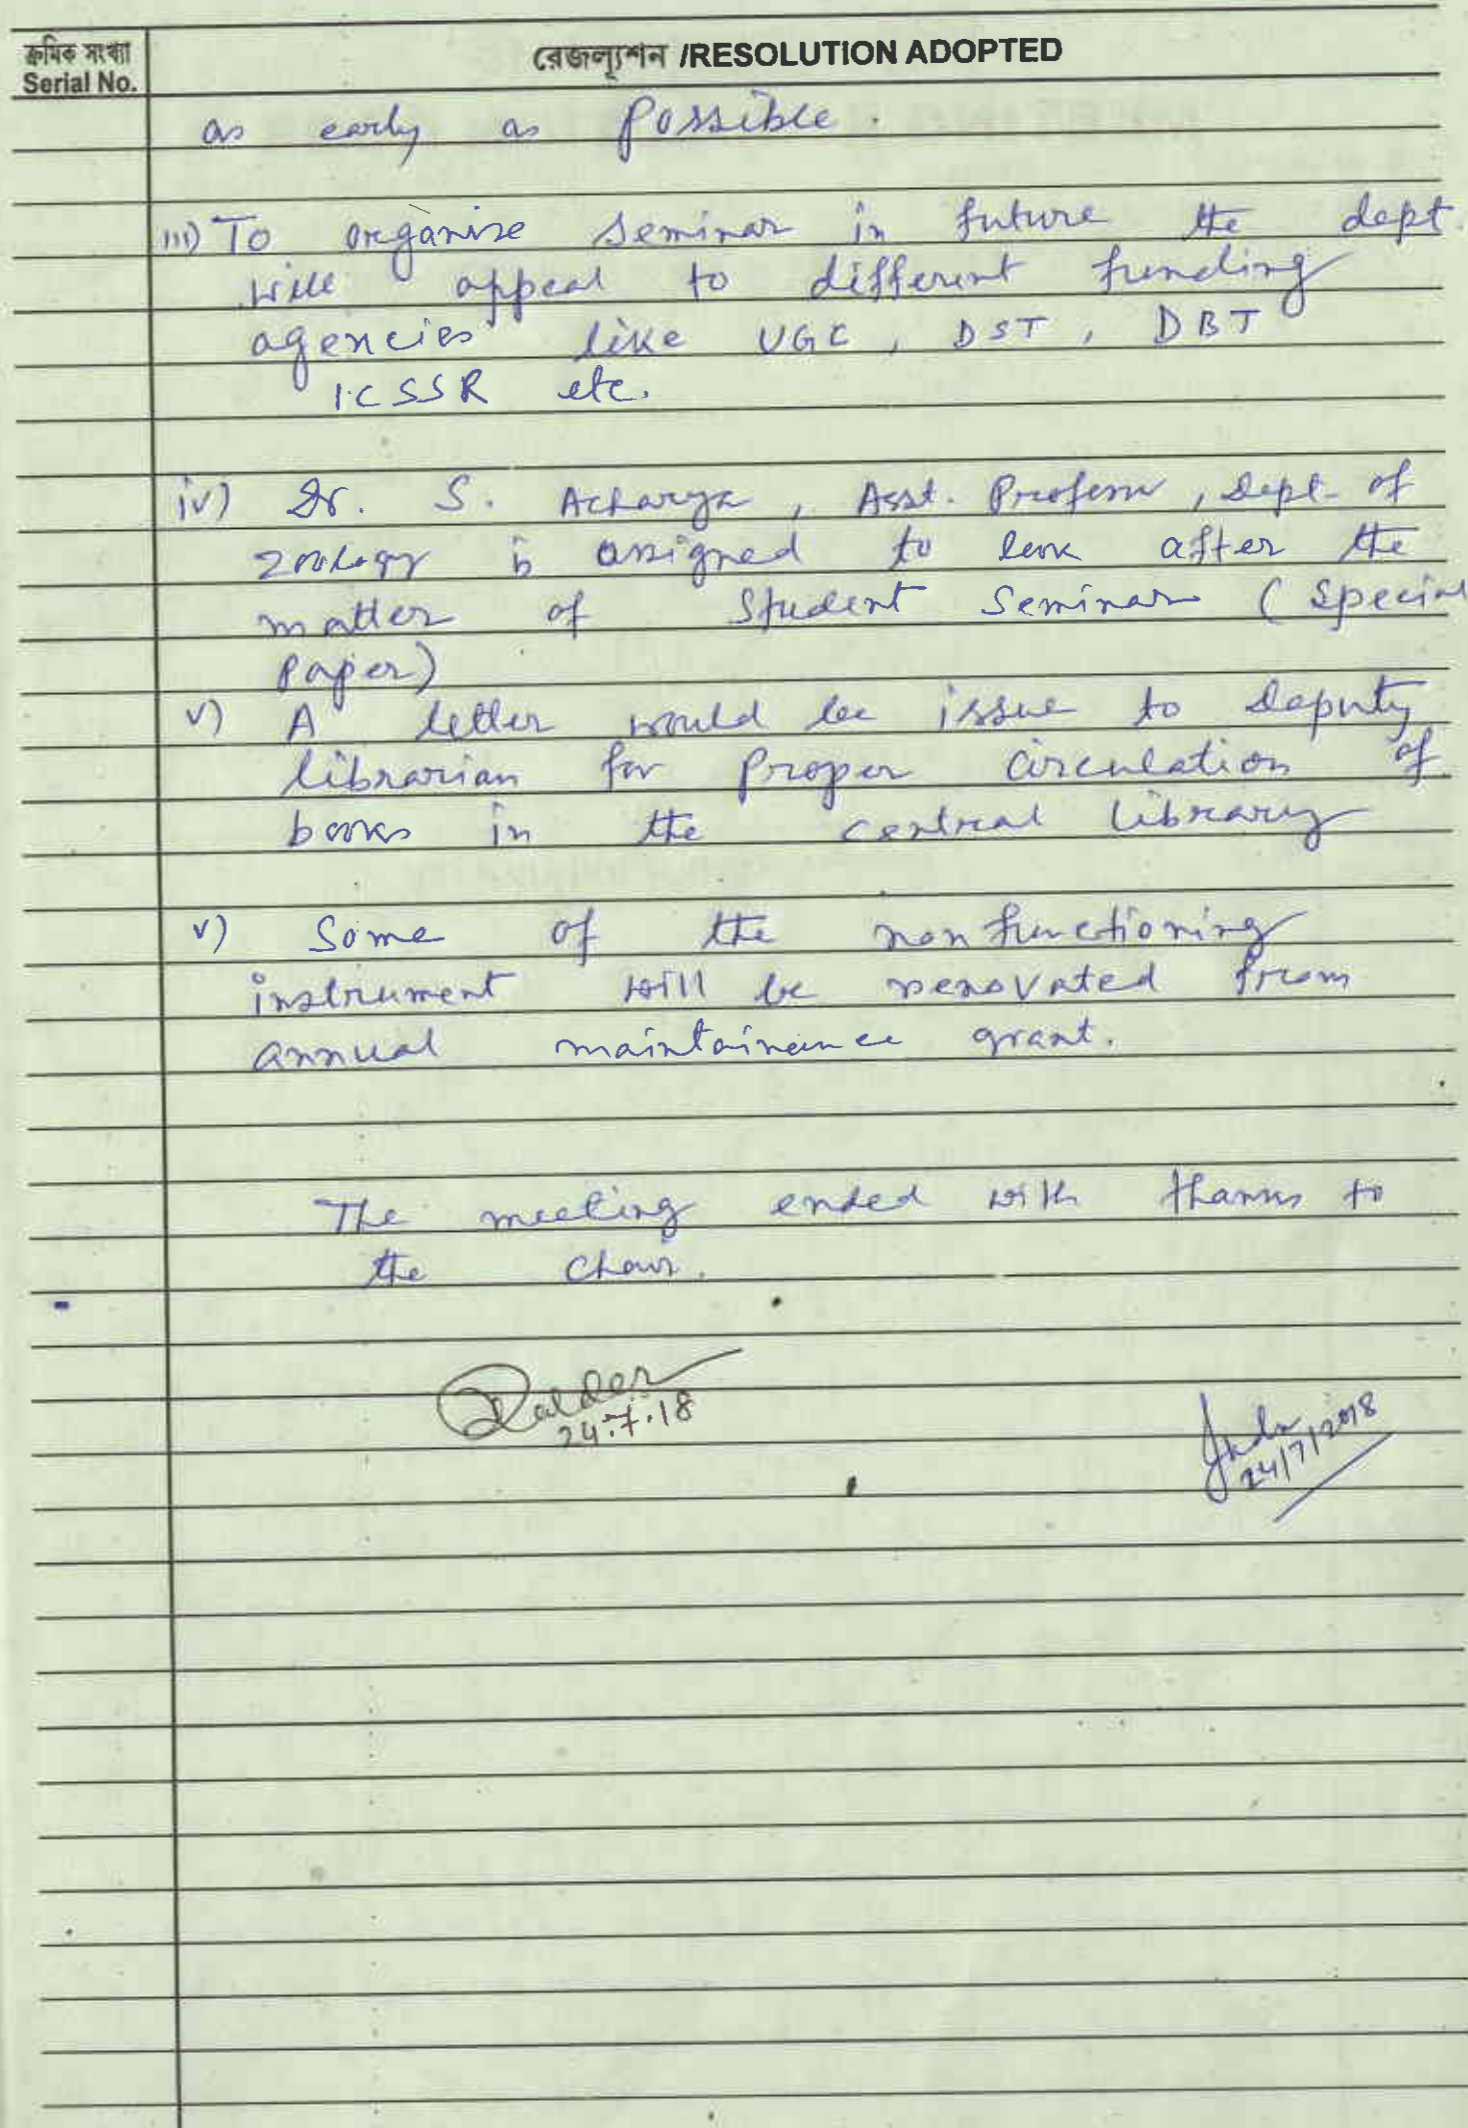 ক্রমিক সংখ্যা
Serial No.
রেজল্যুশন /RESOLUTION ADOPTED
as early as possible.
iii) To organise seminar in future the dept.
will appeal to different funding
agencies like UGC, DST, DBT
ICSSR etc.
iv) Dr. S. Acharya, Asst. Professor, Dept. of
Zoology is assigned to look after the
matter of student seminar (Special
Paper)
v) A letter would be issue to deputy
librarian for proper circulation of
books in the central library
v) Some of the non functioning
instrument will be renovated from
annual maintainence grant.
The meeting ended with thanks to
the chair.
Halder
24.7.18
24/7/2018